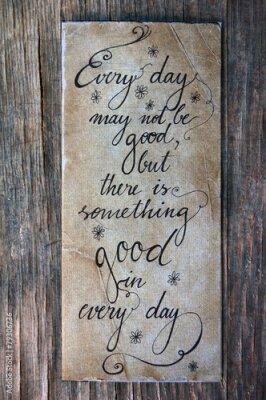 Every day
may not be
good,
but
there is
something
good
in
every day